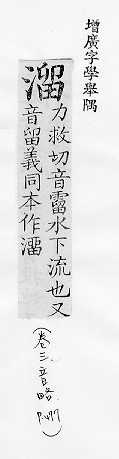 增廣字學舉隅
溜力救切音霤水下流也又
音留義同本作澑
(卷三.音略.